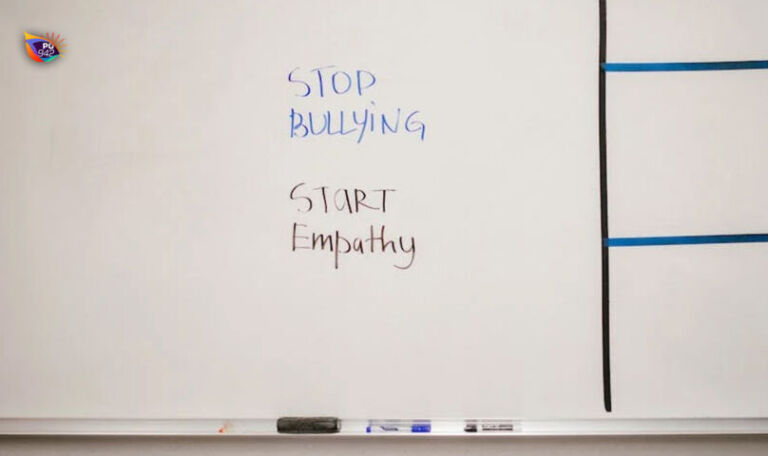 PU
942
STOP
BULLYiNG
START
Empathy